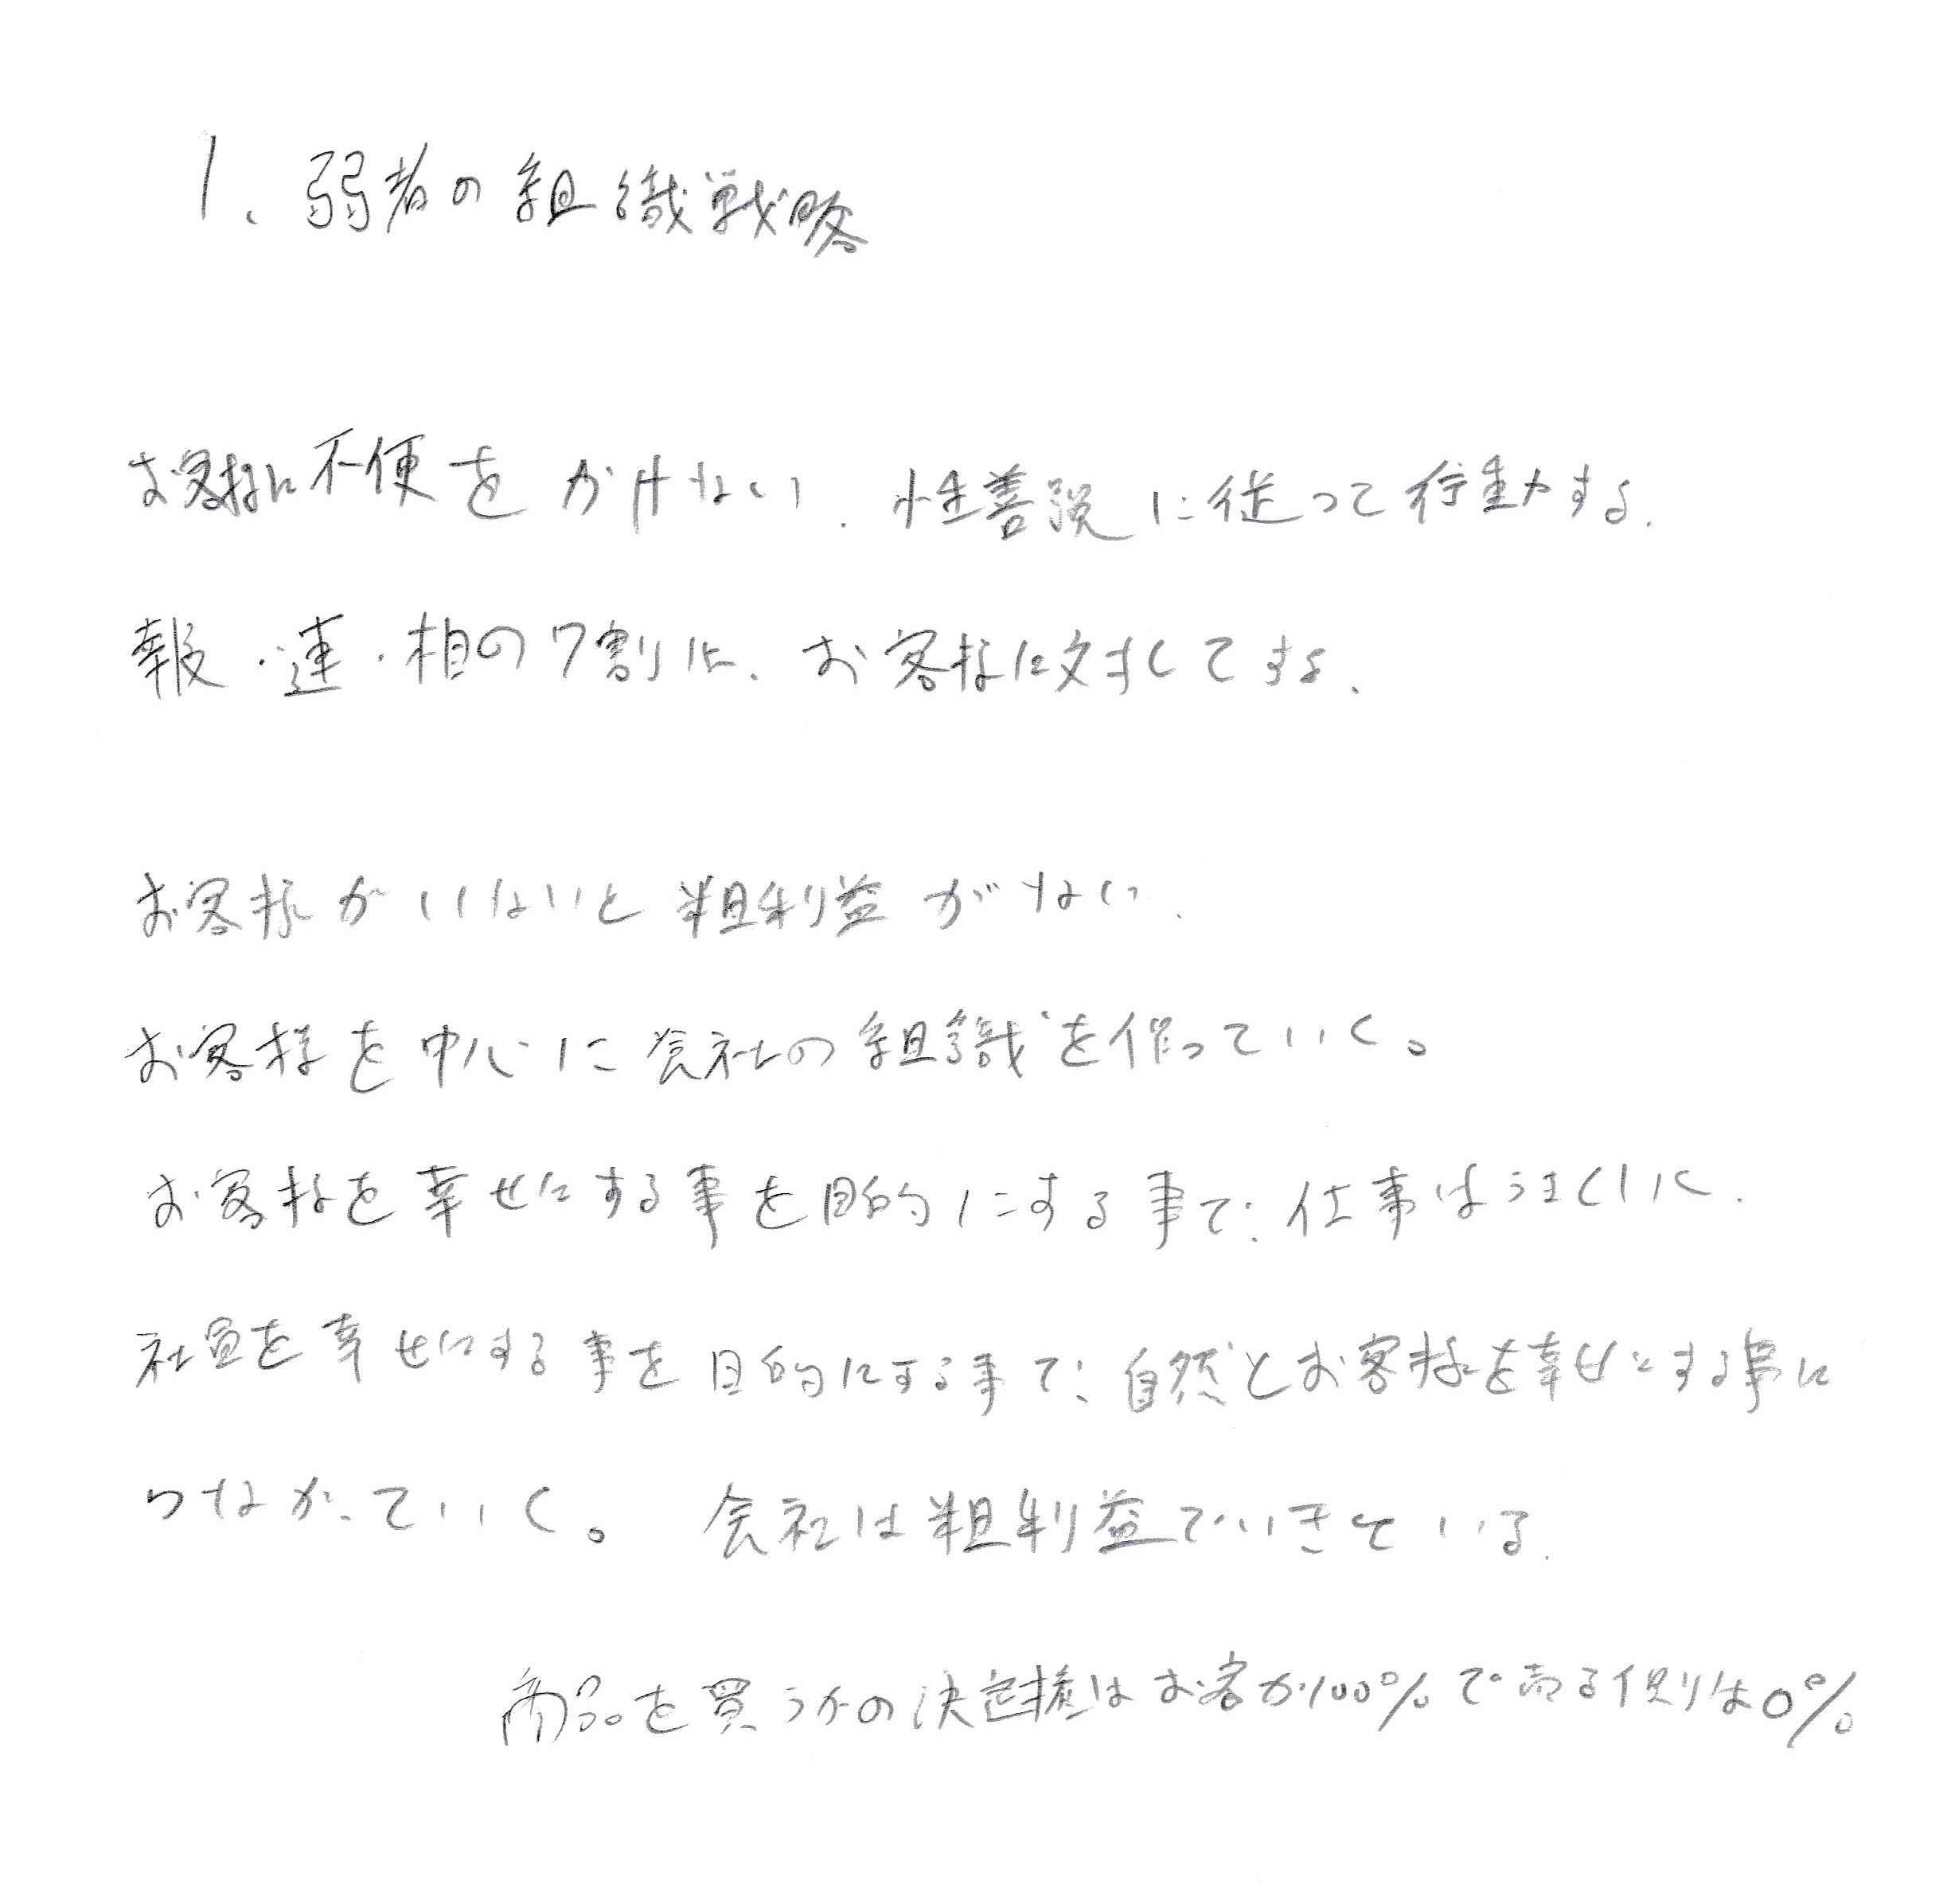 1、弱者の組織戦略
お客様に不便をかけない、性善説に従って行動する、
報・連・相の7割は、お客様に対してする、
お客様がいないと粗利益がない、
お客様を中心に会社の組織を作っていく。
お客様を幸せにする事を目的にする事で、仕事はうまくいく、
社員を幸せにする事を目的にする事で、自然とお客様を幸せにする事に
つながっていく。 会社は粗利益でいきている、
商品を買うかの決定権はお客が100%で売る側は0%